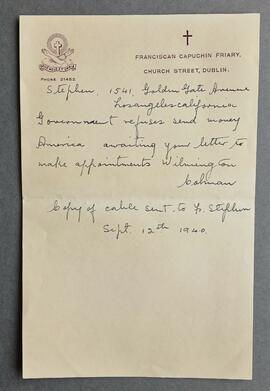 PHONE 21452.
FRANCISCAN CAPUCHIN FRIARY,
CHURCH STREET, DUBLIN.
Stephen. 1541. Golden Gate Avenue
Losangelescalifornia
Government refuses send money
America awaiting your letter to
make appointments Wilmington
Colman
Copy of cable sent to Fr. Stephen
Sept. 12th 1940.